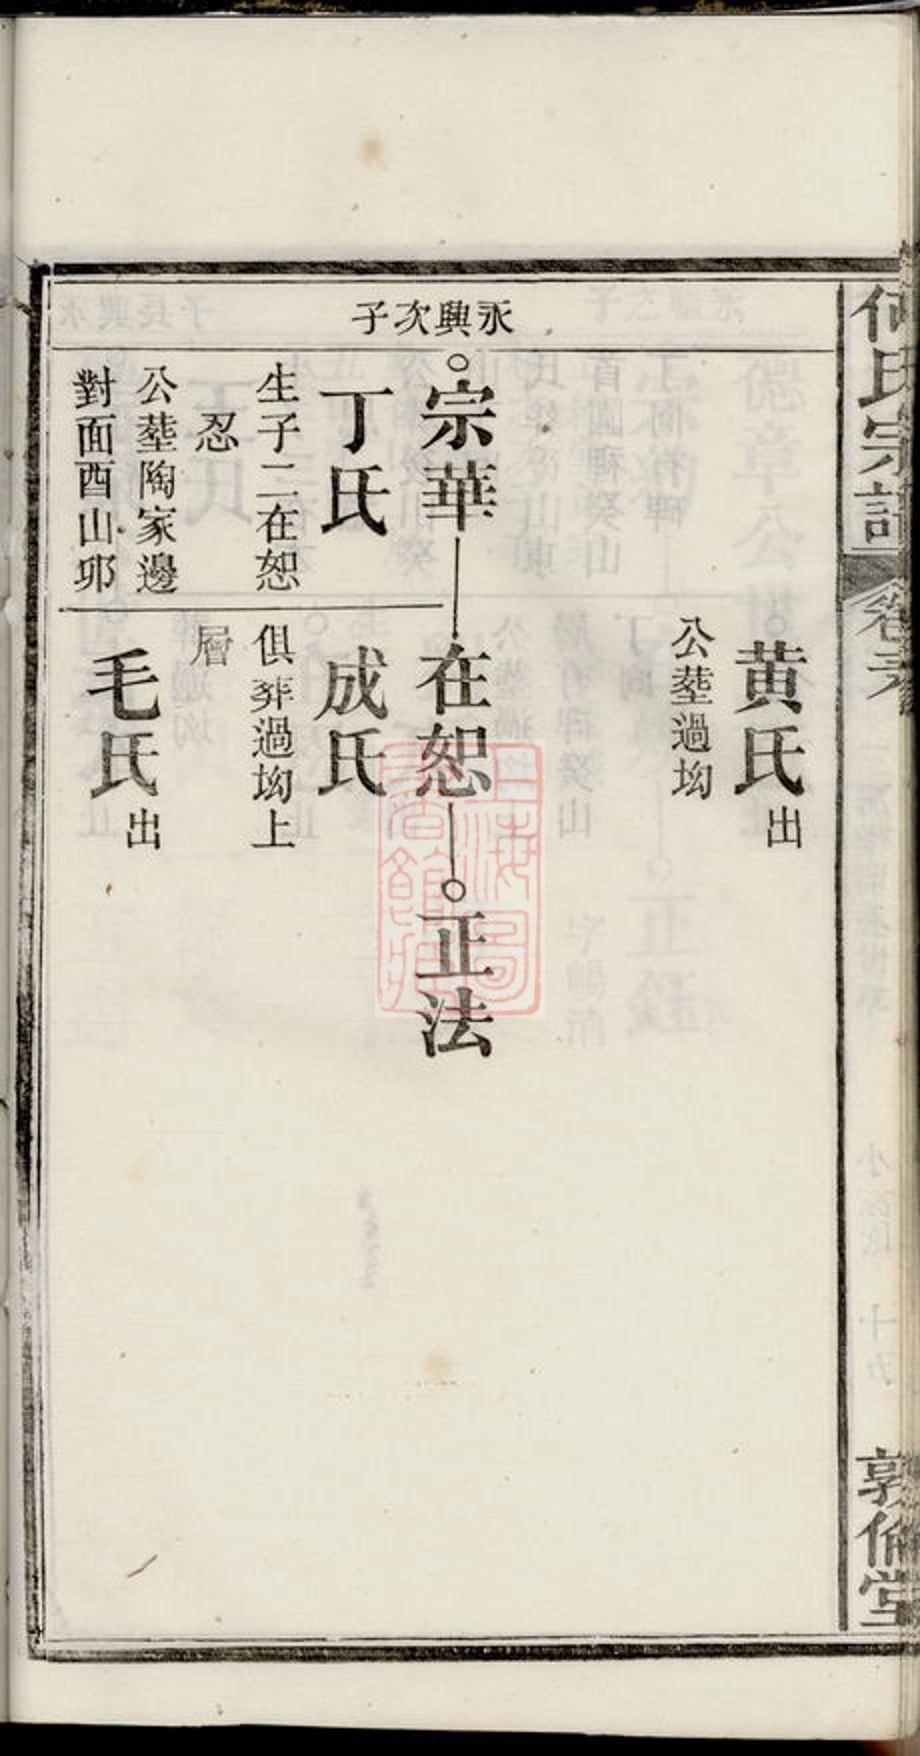 何氏宗譜
敦倫堂
黄氏出
公塟過坳
永興次子
宗華
在恕
正法
丁氏
成氏
生子二在恕
忍
俱葬過坳上
層
公塟陶家邊
對面酉山卯
毛氏出